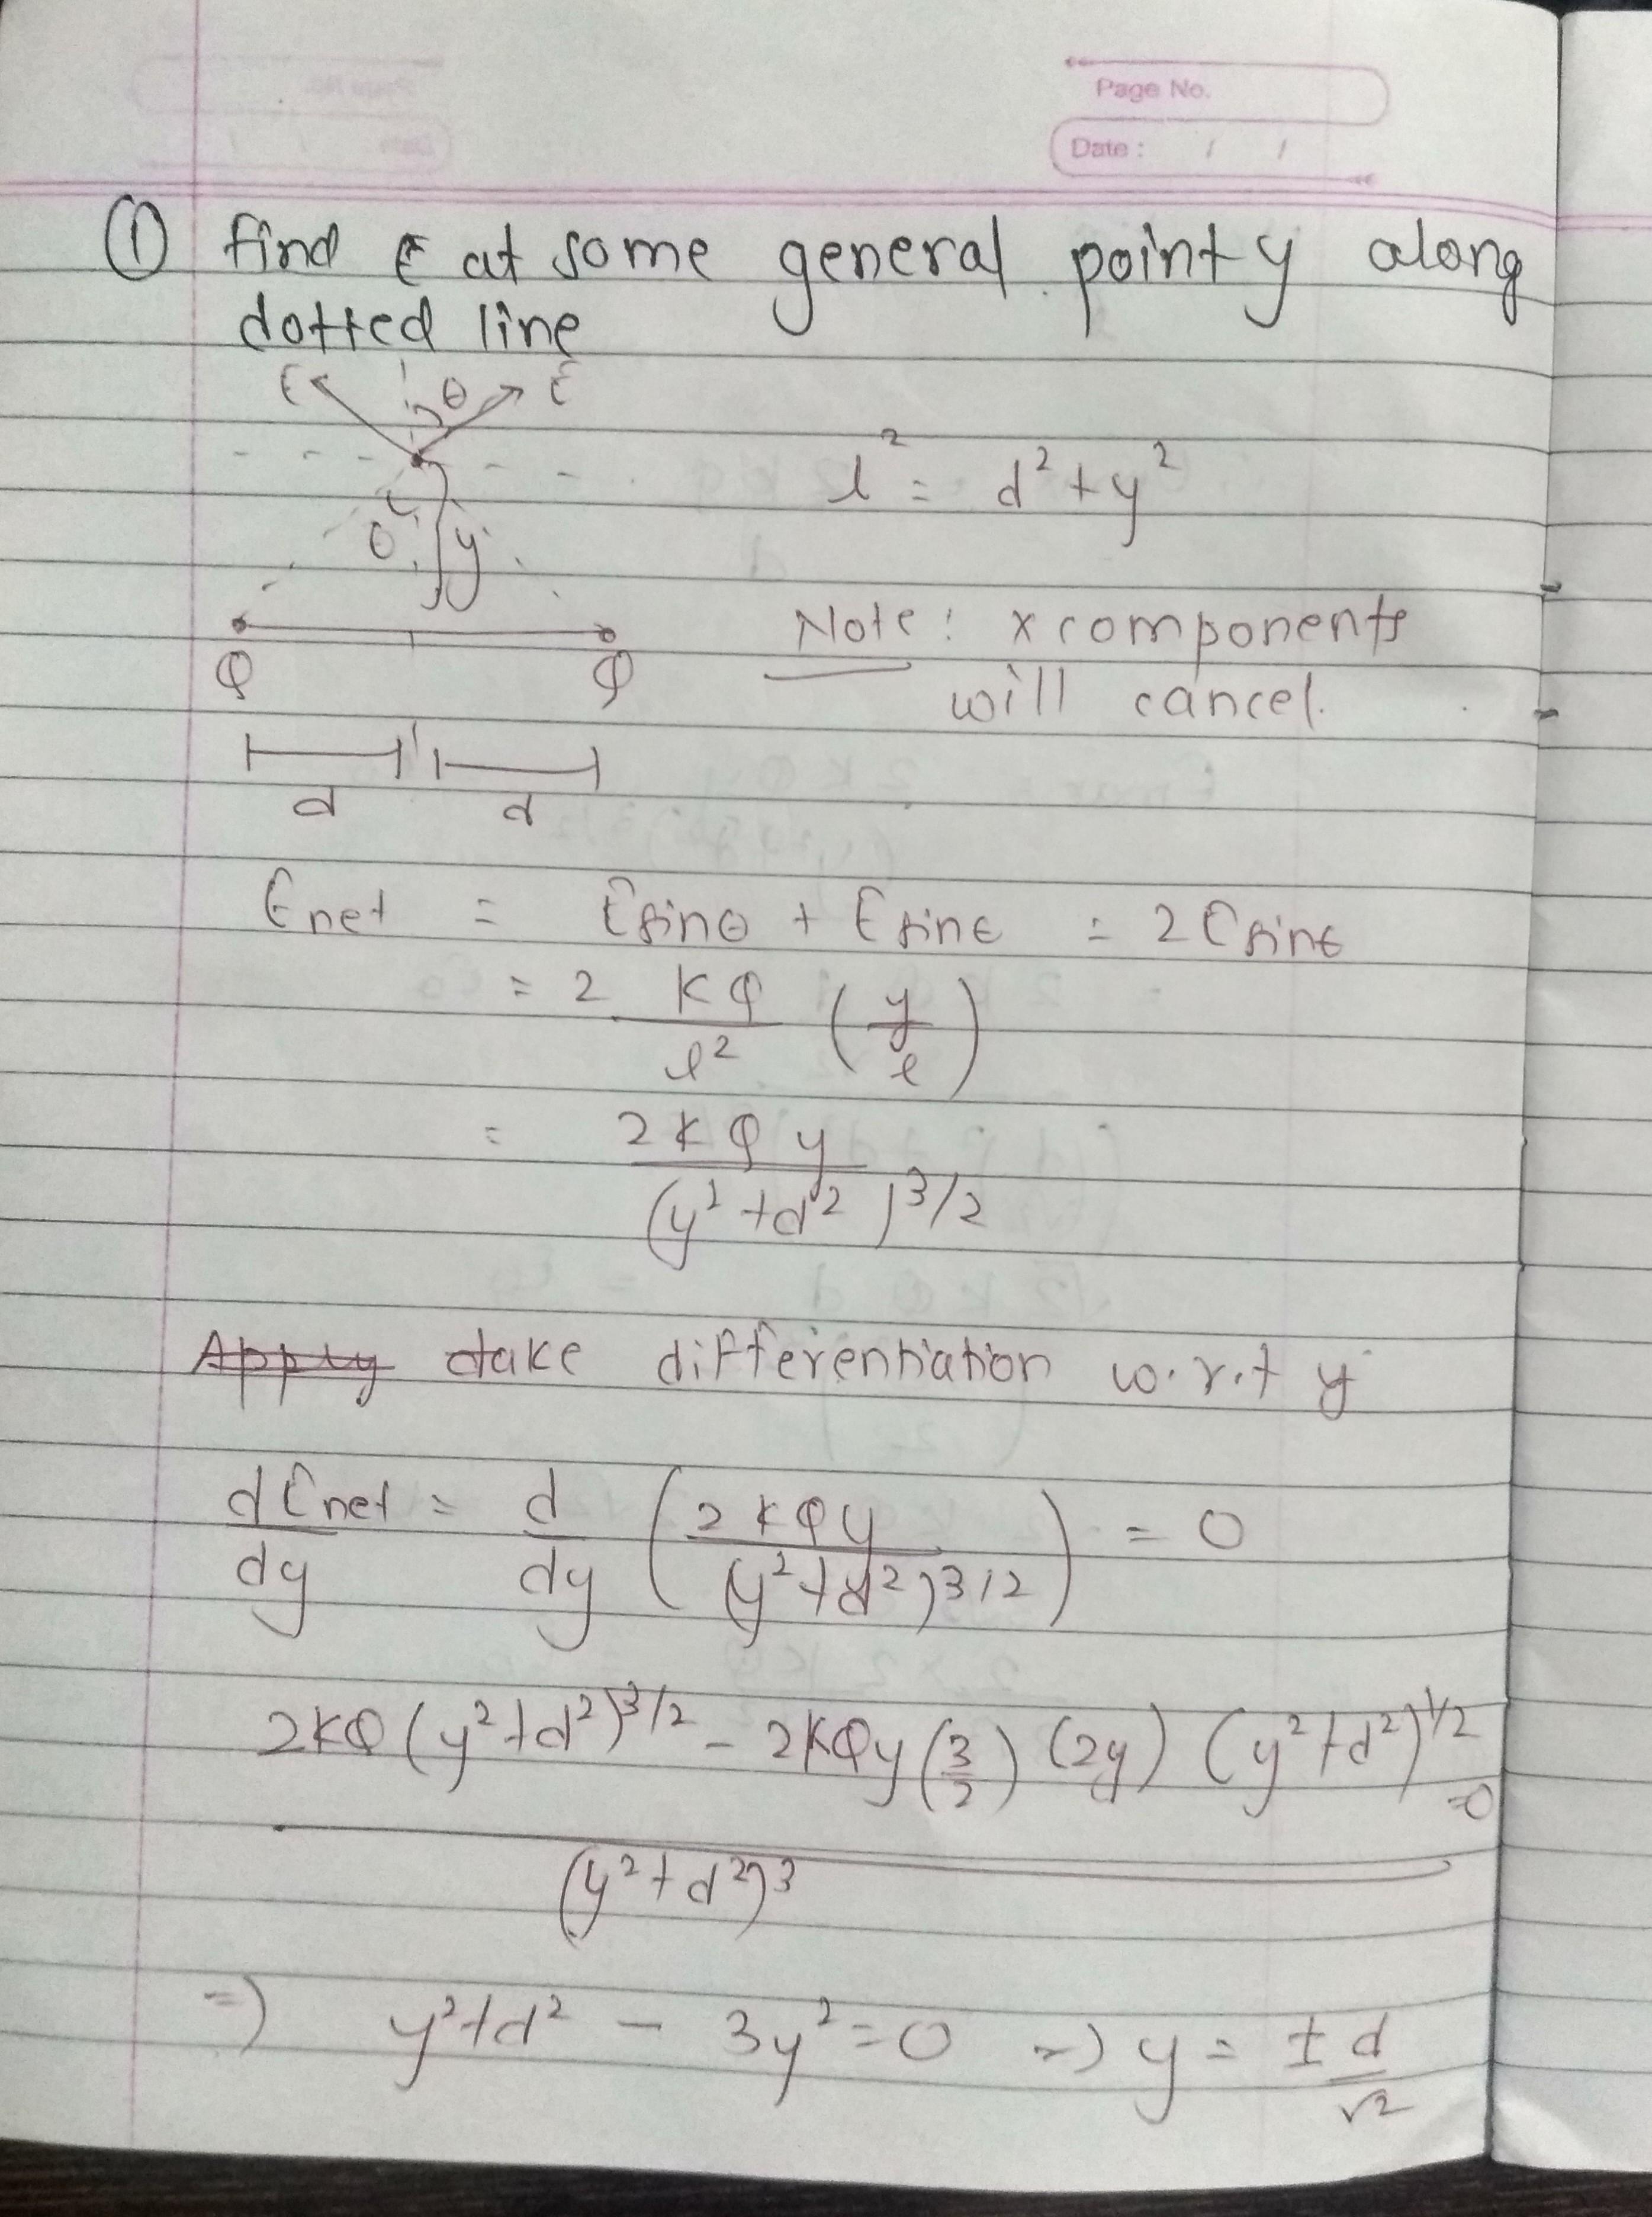 Page No.
Date : / /
① find E at some general point y along
dotted line
E θ E
l² = d² + y²
θ y
Q Q
Note : x components
will cancel.
d d
Enet = E sinθ + E sinθ = 2 E sinθ
= 2 KQ/l² (y/l)
= 2KQy/(y² + d²)^3/2
Apply take differentiation w.r.t y
dEnet/dy = d/dy (2KQy/(y²+d²)^3/2) = 0
2KQ(y²+d²)^3/2 - 2KQy(3/2)(2y)(y²+d²)^1/2 = 0
(y²+d²)³
⇒ y²+d² - 3y² = 0 ⇒ y = ± d/√2